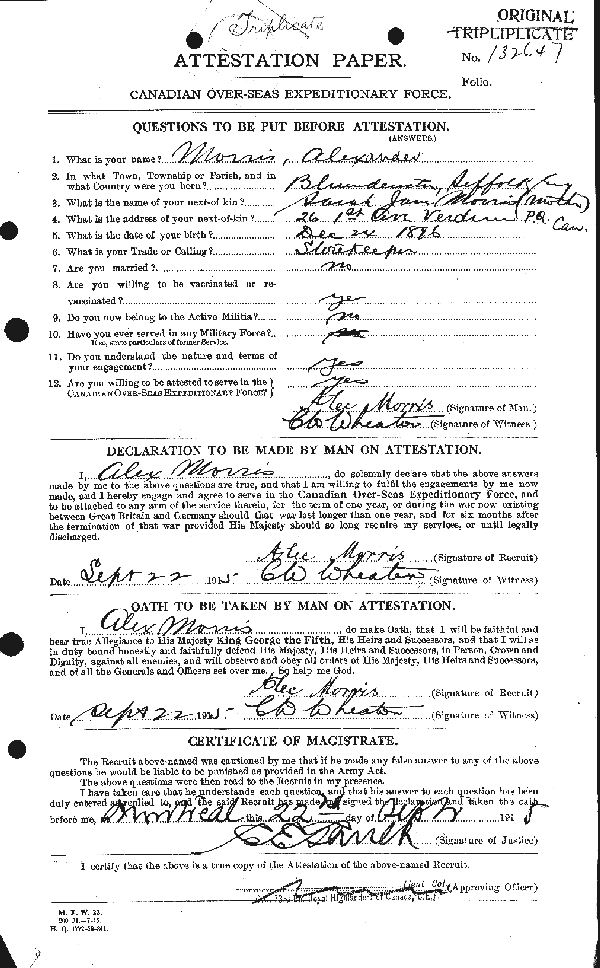 Triplicate
ORIGINAL
TRIPLIPLICATE
ATTESTATION PAPER.
No. 132647
Folio.
CANADIAN OVER-SEAS EXPEDITIONARY FORCE.
QUESTIONS TO BE PUT BEFORE ATTESTATION.
(ANSWERS.)
1. What is your name? Morris, Alexander
2. In what Town, Township or Parish, and in
what Country were you born? Blundeston, Suffolk, Eng
3. What is the name of your next-of-kin? Sarah Jane Morris (Mother)
4. What is the address of your next-of-kin? 26 1st Ave Verdun P.Q. Can.
5. What is the date of your birth? Dec 24 1896
6. What is your Trade or Calling? Storekeeper
7. Are you married? no
8. Are you willing to be vaccinated or re-
vaccinated? yes
9. Do you now belong to the Active Militia? no
10. Have you ever served in any Military Force?
If so, state particulars of former Service.
11. Do you understand the nature and terms of
your engagement? yes
12. Are you willing to be attested to serve in the
CANADIAN OVER-SEAS EXPEDITIONARY FORCE? yes
Alec Morris (Signature of Man.)
CW Wheaton (Signature of Witness)
DECLARATION TO BE MADE BY MAN ON ATTESTATION.
I, Alex Morris, do solemnly declare that the above answers
made by me to the above questions are true, and that I am willing to fulfil the engagements by me now
made, and I hereby engage and agree to serve in the Canadian Over-Seas Expeditionary Force, and
to be attached to any arm of the service therein, for the term of one year, or during the war now existing
between Great Britain and Germany should that war last longer than one year, and for six months after
the termination of that war provided His Majesty should so long require my services, or until legally
discharged.
Alec Morris (Signature of Recruit)
Date Sept 22 1915 CW Wheaton (Signature of Witness)
OATH TO BE TAKEN BY MAN ON ATTESTATION.
I, Alex Morris, do make Oath, that I will be faithful and
bear true Allegiance to His Majesty King George the Fifth, His Heirs and Successors, and that I will as
in duty bound honestly and faithfully defend His Majesty, His Heirs and Successors, in Person, Crown and
Dignity, against all enemies, and will observe and obey all orders of His Majesty, His Heirs and Successors,
and of all the Generals and Officers set over me. So help me God.
Alec Morris (Signature of Recruit)
Date Sept 22 1915 CW Wheaton (Signature of Witness)
CERTIFICATE OF MAGISTRATE.
The Recruit above-named was cautioned by me that if he made any false answer to any of the above
questions he would be liable to be punished as provided in the Army Act.
The above questions were then read to the Recruit in my presence.
I have taken care that he understands each question, and that his answer to each question has been
duly entered as replied to, and the said Recruit has made and signed the declaration and taken the oath
before me, at Montreal this 22nd day of Sept 1915
(Signature of Justice)
I certify that the above is a true copy of the Attestation of the above-named Recruit.
Lieut Col. (Approving Officer)
Royal Highlanders of Canada, C.E.F.
M. F. W. 23.